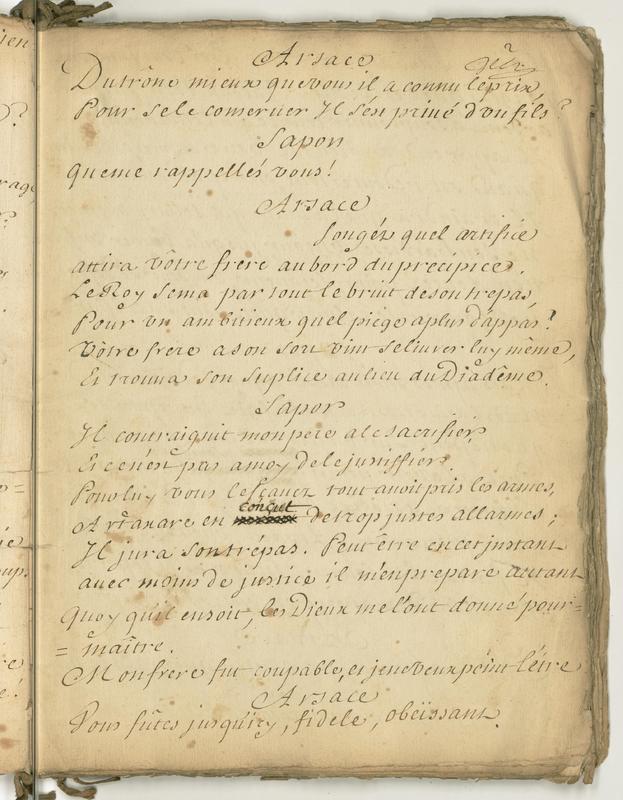 Arsace
Du trône mieux que vous il a connu le prix,
Pour se le conserver Il s'est privé d'un fils?
Sapor
que me rappellés vous!
Arsace
Songés quel artifice
attira vôtre frere au bord du precipice.
Le Roy sema par tout le bruit de son trepas,
Pour un ambitieux quel piége a plus d'appas?
Vôtre frere a son sort vint se livrer luy même,
Et trouva son suplice au lieu du Diadême.
Sapor
Il contraignit mon pere a le sacrifier,
Et ce n'est pas a moy de le justiffier.
Pour luy vous le sçavez tout avoit pris les armes,
Artaxare en conçut de trop justes allarmes;
Il jura son trépas. Peut être en cet instant
avec moins de justice il m'en prepare autant
Quoy qu'il en soit, les Dieux me l'ont donné pour=
= maître.
Mon frere fut coupable, et je ne veux point l'être
Arsace
Vous fûtes jusqu'icy, fidele, obeïssant.